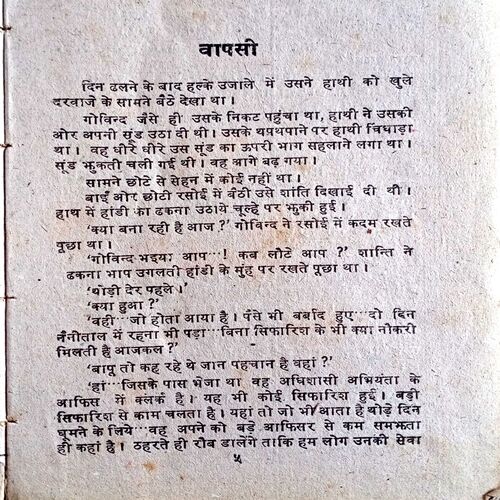 वापसी
दिन ढलने के बाद हल्के उजाले में उसने हाथी को खुले
दरवाजे के सामने बैठे देखा था।
गोविन्द जैसे ही उसके निकट पहुंचा था, हाथी ने उसकी
ओर अपनी सूंड उठा दी थी। उसके थपथपाने पर हाथी चिंघाड़ा
था। वह धीरे धीरे उस सूंड का ऊपरी भाग सहलाने लगा था।
सूंड झुकती चली गई थी। वह आगे बढ़ गया।
सामने छोटे से सेहन में कोई नहीं था।
बाईं ओर छोटी रसोई में बैठी उसे शांति दिखाई दी थी।
हाथ में हांडी का ढकना उठाये चूल्हे पर झुकी हुई।
'क्या बना रही है आज ?' गोविन्द ने रसोई में कदम रखते
पूछा था।
'गोविन्द भइया आप···! कब लौटे आप ?' शान्ति ने
ढकना भाप उगलती हांडी के मुंह पर रखते पूछा था।
'थोड़ी देर पहले।'
'क्या हुआ ?'
'वही···जो होता आया है। पैसे भी बर्बाद हुए···दो दिन
नैनीताल में रहना भी पड़ा···बिना सिफारिश के भी क्या नौकरी
मिलती है आजकल ?'
'बापू तो कह रहे थे जान पहचान है वहां ?'
'हां···जिसके पास भेजा था वह अधिशासी अभियंता के
आफिस में क्लर्क है। यह भी कोई सिफारिश हुई। बड़ी
सिफारिश से काम चलता है। यहां तो जो भी आता है थोड़े दिन
घूमने के लिये···वह अपने को बड़े आफिसर से कम समझता
ही कहां है। ठहरते ही रौब डालेंगे ताकि हम लोग उनकी सेवा
५